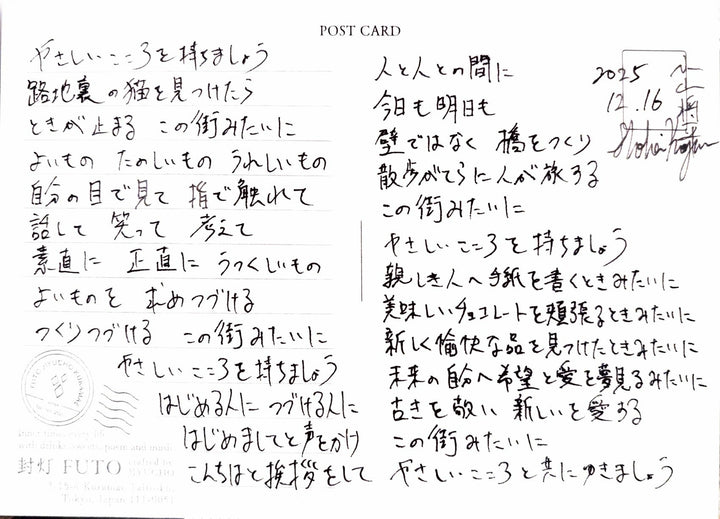 POST CARD
やさしいこころを持ちましょう
路地裏の猫を見つけたら
ときが止まる この街みたいに
よいもの たのしいもの うれしいもの
自分の目で見て 指で触れて
話して 笑って 考えて
素直に 正直に うつくしいもの
よいものを 求めつづける
つくりつづける この街みたいに
やさしいこころを持ちましょう
はじめる人に つづける人に
はじめましてと声をかけ
こんちはと挨拶をして
人と人との間に
今日も明日も
壁ではなく 橋をつくり
散歩がてらに人が旅する
この街みたいに
やさしいこころを持ちましょう
親しき人へ手紙を書くときみたいに
美味しいチョコレートを頬張るときみたいに
新しく愉快な品を見つけたときみたいに
未来の自分へ希望と愛を夢見るみたいに
古きを敬い 新しいを愛する
この街みたいに
やさしいこころと共にゆきましょう
2025
12.16
封灯 FUTO
Tokyo, Japan